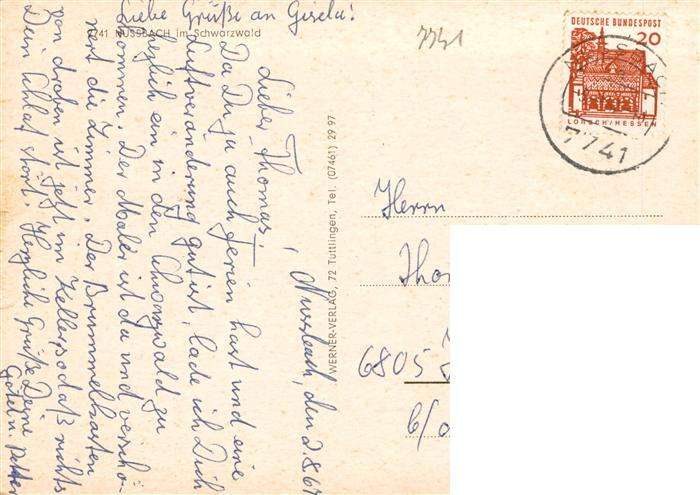 Liebe Grüße an Gisela!
7741 NUSSBACH im Schwarzwald
Nussbach, den 2.8.67
Lieber Thomas,
Da Du ja auch Ferien hast und eine
Luftveränderung gut ist, lade ich Dich
herzlich ein in den Schwarzwald zu
kommen. Der Maler ist da und verschö-
nert die Zimmer. Der Brummelkasten
von droben ist jetzt im Keller sodaß nichts
Dein Schlaf stört. Herzliche Grüße Deine
WERNER-VERLAG, 72 Tuttlingen, Tel. (07461) 29 97
7741
DEUTSCHE BUNDESPOST
20
LORSCH/HESSEN
7741
Herrn
Tho
6805
c/o